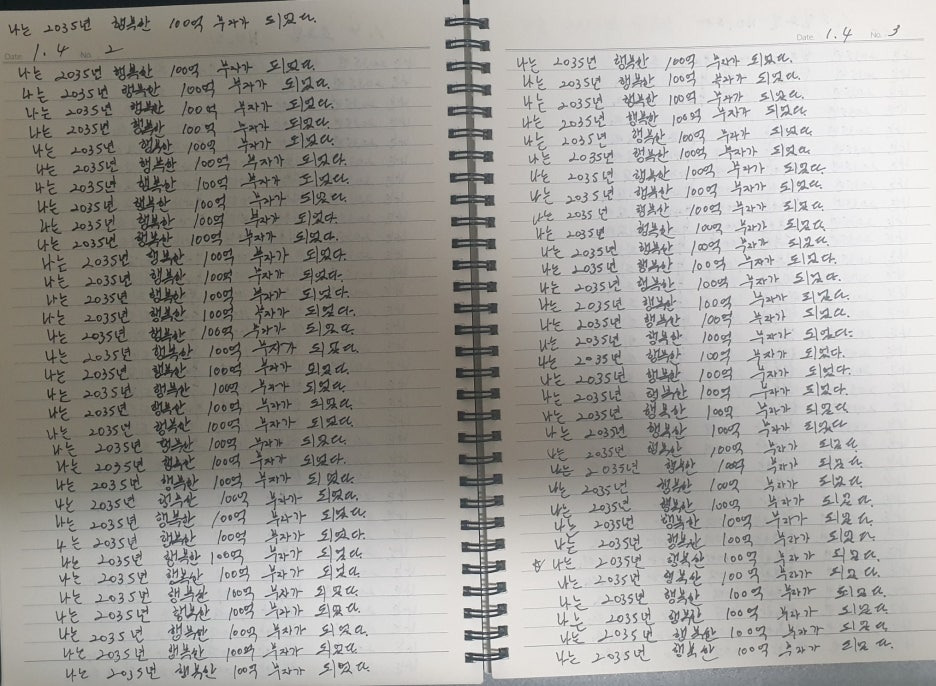 나는 2035년 행복한 100억 부자가 되었다.
Date 1. 4 No. 2
나는 2035년 행복한 100억 부자가 되었다.
나는 2035년 행복한 100억 부자가 되었다.
나는 2035년 행복한 100억 부자가 되었다.
나는 2035년 행복한 100억 부자가 되었다.
나는 2035년 행복한 100억 부자가 되었다.
나는 2035년 행복한 100억 부자가 되었다.
나는 2035년 행복한 100억 부자가 되었다.
나는 2035년 행복한 100억 부자가 되었다.
나는 2035년 행복한 100억 부자가 되었다.
나는 2035년 행복한 100억 부자가 되었다.
나는 2035년 행복한 100억 부자가 되었다.
나는 2035년 행복한 100억 부자가 되었다.
나는 2035년 행복한 100억 부자가 되었다.
나는 2035년 행복한 100억 부자가 되었다.
나는 2035년 행복한 100억 부자가 되었다.
나는 2035년 행복한 100억 부자가 되었다.
나는 2035년 행복한 100억 부자가 되었다.
나는 2035년 행복한 100억 부자가 되었다.
나는 2035년 행복한 100억 부자가 되었다.
나는 2035년 행복한 100억 부자가 되었다.
나는 2035년 행복한 100억 부자가 되었다.
나는 2035년 행복한 100억 부자가 되었다.
나는 2035년 행복한 100억 부자가 되었다.
나는 2035년 행복한 100억 부자가 되었다.
나는 2035년 행복한 100억 부자가 되었다.
나는 2035년 행복한 100억 부자가 되었다.
나는 2035년 행복한 100억 부자가 되었다.
나는 2035년 행복한 100억 부자가 되었다.
나는 2035년 행복한 100억 부자가 되었다.
나는 2035년 행복한 100억 부자가 되었다.
나는 2035년 행복한 100억 부자가 되었다.
나는 2035년 행복한 100억 부자가 되었다.
나는 2035년 행복한 100억 부자가 되었다.
Date 1. 4 No. 3
나는 2035년 행복한 100억 부자가 되었다.
나는 2035년 행복한 100억 부자가 되었다.
나는 2035년 행복한 100억 부자가 되었다.
나는 2035년 행복한 100억 부자가 되었다.
나는 2035년 행복한 100억 부자가 되었다.
나는 2035년 행복한 100억 부자가 되었다.
나는 2035년 행복한 100억 부자가 되었다.
나는 2035년 행복한 100억 부자가 되었다.
나는 2035년 행복한 100억 부자가 되었다.
나는 2035년 행복한 100억 부자가 되었다.
나는 2035년 행복한 100억 부자가 되었다.
나는 2035년 행복한 100억 부자가 되었다.
나는 2035년 행복한 100억 부자가 되었다.
나는 2035년 행복한 100억 부자가 되었다.
나는 2035년 행복한 100억 부자가 되었다.
나는 2035년 행복한 100억 부자가 되었다.
나는 2035년 행복한 100억 부자가 되었다.
나는 2035년 행복한 100억 부자가 되었다.
나는 2035년 행복한 100억 부자가 되었다.
나는 2035년 행복한 100억 부자가 되었다.
나는 2035년 행복한 100억 부자가 되었다.
나는 2035년 행복한 100억 부자가 되었다.
나는 2035년 행복한 100억 부자가 되었다.
나는 2035년 행복한 100억 부자가 되었다.
나는 2035년 행복한 100억 부자가 되었다.
나는 2035년 행복한 100억 부자가 되었다.
나는 2035년 행복한 100억 부자가 되었다.
나는 2035년 행복한 100억 부자가 되었다.
나는 2035년 행복한 100억 부자가 되었다.
나는 2035년 행복한 100억 부자가 되었다.
나는 2035년 행복한 100억 부자가 되었다.
나는 2035년 행복한 100억 부자가 되었다.
나는 2035년 행복한 100억 부자가 되었다.